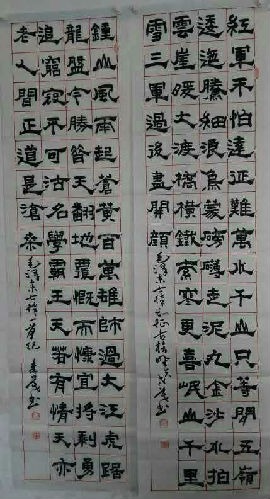 紅軍不怕遠征難萬水千山只等閒五嶺
逶迤騰細浪烏蒙磅礴走泥丸金沙水拍
雲崖暖大渡橋橫鐵索寒更喜岷山千里
雪三軍過後盡開顏
毛澤東七律長征
鍾山風雨起蒼黃百萬雄師過大江虎踞
龍盤今勝昔天翻地覆慨而慷宜將剩勇
追窮寇不可沽名學霸王天若有情天亦
老人間正道是滄桑
毛澤東七律一首